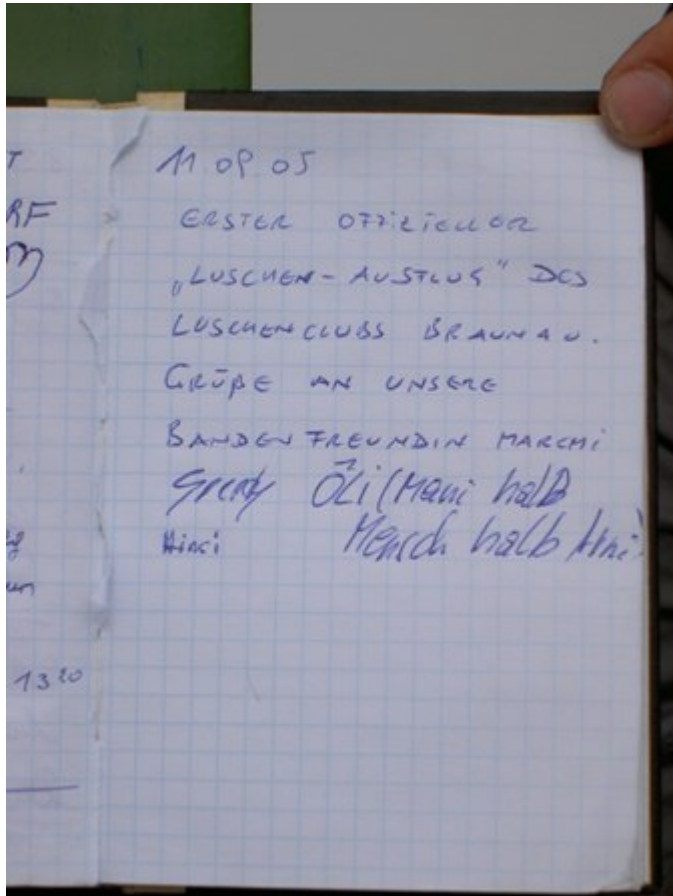 T
RF
13 20
11 09 05
ERSTER OFFIZIELLER
„LUSCHEN-AUSFLUG“ DES
LUSCHENCLUBS BRAUNAU.
GRÜßE AN UNSERE
BANDENFREUNDIN MARCHI
ÖLi (Mani halb
Hinci Mensch halb